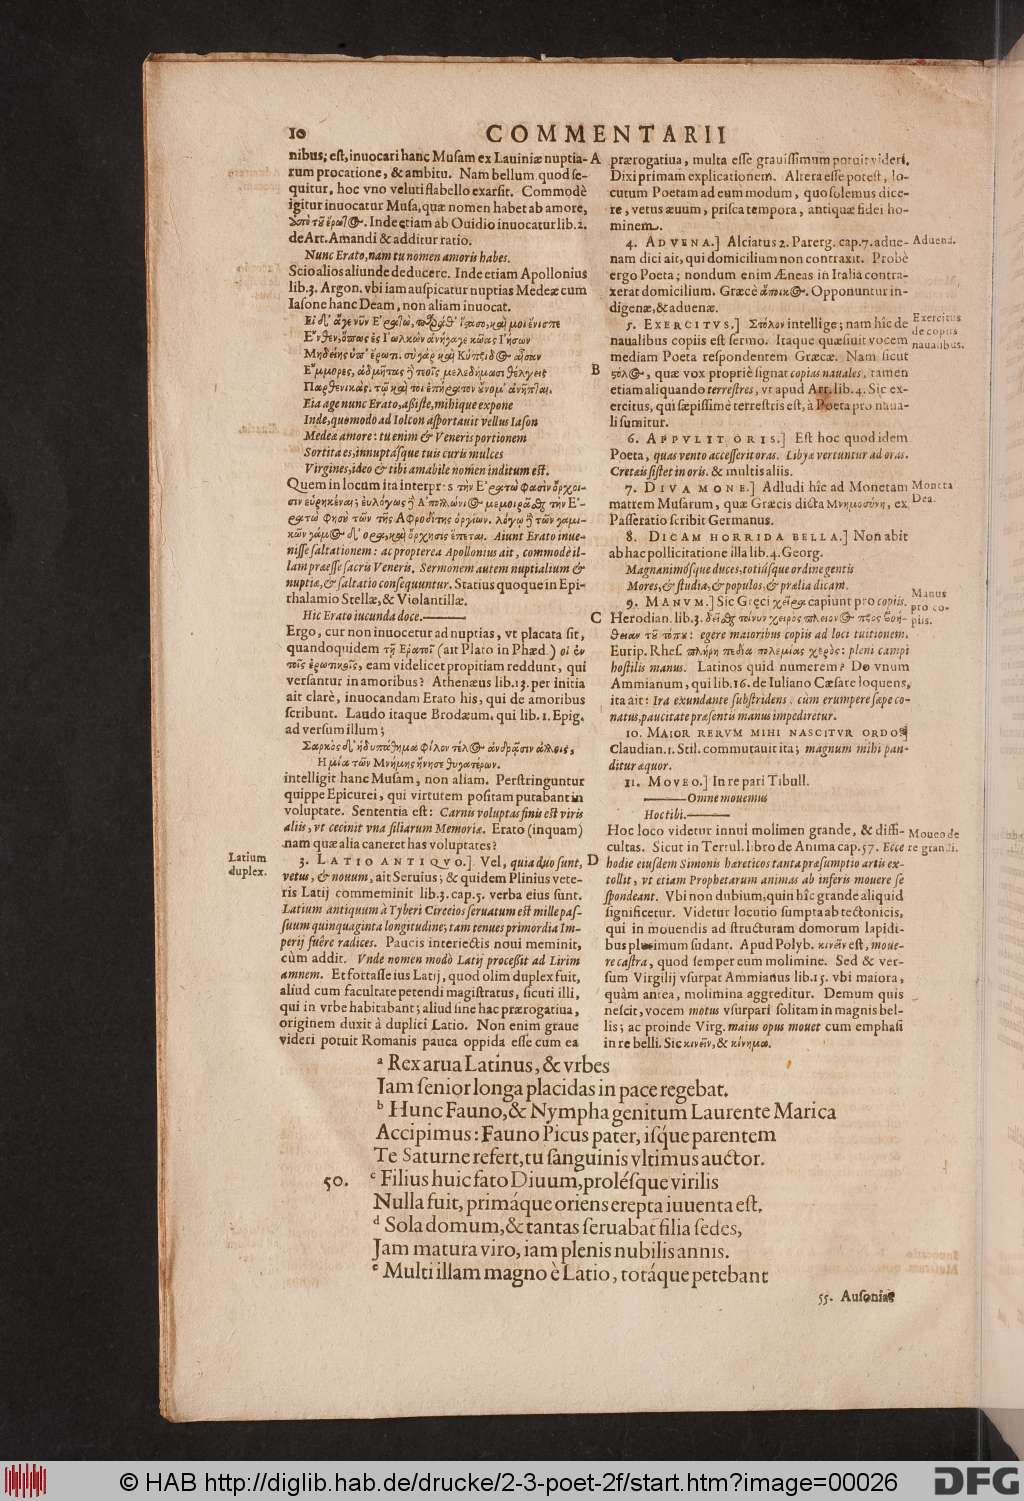 10 COMMENTARII
nibus; est, inuocari hanc Musam ex Lauiniæ nuptia-
rum procatione, & ambitu. Nam bellum quod se-
quitur, hoc vno veluti flabello exarsit. Commodè
igitur inuocatur Musa, quæ nomen habet ab amore,
ἀπὸ τοῦ ἔρωτος. Inde etiam ab Ouidio inuocatur lib. 2.
de Art. Amandi & additur ratio.
Nunc Erato, nam tu nomen amoris habes.
Scio alios aliunde deducere. Inde etiam Apollonius
lib. 3. Argon. vbi iam auspicatur nuptias Medeæ cum
Iasone hanc Deam, non aliam inuocat.
Εἰ δ' ἄγε νῦν Ἐρατὼ, παρά θ' ἵστασο, καί μοι ἔνισπε
Ἔνθεν, ὅπως ἐς Ἰωλκὸν ἀνήγαγε κῶας Ἰήσων
Μηδείης ὑπ' ἔρωτι. σὺ γὰρ καὶ Κύπριδος αἶσαν
Ἔμμορες, ἀδμῆτας δὲ τεοῖς μελεδήμασι θέλγεις
Παρθενικάς. τῷ καί τοι ἐπήρατον οὔνομ' ἀνῆπται.
Eia age nunc Erato, assiste, mihique expone
Inde, quomodo ad Iolcon asportauit vellus Iason
Medeæ amore: tu enim & Veneris portionem
Sortita es, innuptásque tuis curis mulces
Virgines, ideo & tibi amabile nomen inditum est.
Quem in locum ita interpres τὴν Ἐρατὼ φασὶν ὄρχη-
σιν εὑρηκέναι; εὐλόγως δὲ Ἀπολλώνιος μεμοίραται τὴν Ἐ-
ρατὼ φησὶ τῶν τῆς Ἀφροδίτης ὀργίων. λόγῳ δὲ τῶν γαμι-
κῶν γάμος δὲ ὁρᾷ, καὶ ὄρχησις ἕπεται. Aiunt Erato inue-
nisse saltationem: ac propterea Apollonius ait, commodè il-
lam præesse sacris Veneris. Sermonem autem nuptialium &
nuptiæ, & saltatio consequuntur. Statius quoque in Epi-
thalamio Stellæ, & Violantillæ.
Hic Erato iucunda doce.———
Ergo, cur non inuocetur ad nuptias, vt placata sit,
quandoquidem τῇ Ἐρατοῖ (ait Plato in Phæd.) οἱ ἐν
τοῖς ἐρωτικοῖς, eam videlicet propitiam reddunt, qui
versantur in amoribus? Athenæus lib. 13. per initia
ait clarè, inuocandam Erato his, qui de amoribus
scribunt. Laudo itaque Brodæum, qui lib. 1. Epig.
ad versum illum;
Σαρκὸς δ' ἡδυπάθημα φίλον τέλος ἀνδράσιν ἄλλοις,
Ἡ μία τῶν Μνήμης ἤνησε θυγατέρων.
intelligit hanc Musam, non aliam. Perstringuntur
quippe Epicurei, qui virtutem positam putabant in
voluptate. Sententia est: Carnis voluptas finis est viris
aliis, vt cecinit vna filiarum Memoriæ. Erato (inquam)
nam quæ alia caneret has voluptates?
Latium
duplex.
3. LATIO ANTIQVO.] Vel, quia duo sunt,
vetus, & nouum, ait Seruius; & quidem Plinius vete-
ris Latij commeminit lib. 3. cap. 5. verba eius sunt.
Latium antiquum à Tyberi Circeios seruatum est mille pas-
suum quinquaginta longitudine; tam tenues primordia Im-
perij fuêre radices. Paucis interiectis noui meminit,
cùm addit. Vnde nomen modò Latij processit ad Lirim
amnem. Et fortasse ius Latij, quod olim duplex fuit,
aliud cum facultate petendi magistratus, sicuti illi,
qui in vrbe habitabant; aliud sine hac prærogatiua,
originem duxit à duplici Latio. Non enim graue
videri potuit Romanis pauca oppida esse cum ea
A
B
C
D
prærogatiua, multa esse grauissimum potuit videri.
Dixi primam explicationem. Altera esse potest, lo-
cutum Poetam ad eum modum, quo solemus dice-
re, vetus æuum, prisca tempora, antiquæ fidei ho-
minem.
4. ADVENA.] Alciatus 2. Parerg. cap. 7. adue-
nam dici ait, qui domicilium non contraxit. Probè
ergo Poeta; nondum enim Æneas in Italia contra-
xerat domicilium. Græcè ἄποικος. Opponuntur in-
digenæ, & aduenæ.
Aduena.
5. EXERCITVS.] Στόλον intellige; nam hîc de
naualibus copiis est sermo. Itaque quæsiuit vocem
mediam Poeta respondentem Græcæ. Nam sicut
στόλος, quæ vox propriè signat copias nauales, tamen
etiam aliquando terrestres, vt apud Arr. lib. 4. Sic ex-
ercitus, qui sæpissimè terrestris est, à Poeta pro naua-
li sumitur.
Exercitus
de copiis
naualibus.
6. APPVLIT ORIS.] Est hoc quod idem
Poeta, quas vento accesserit oras. Libyæ vertuntur ad oras.
Cretæis sistet in oris. & multis aliis.
7. DIVA MONE.] Adludi hîc ad Monetam
matrem Musarum, quæ Græcis dicta Μνημοσύνη, ex
Passeratio scribit Germanus.
Moneta
Dea.
8. DICAM HORRIDA BELLA.] Non abit
ab hac pollicitatione illa lib. 4. Georg.
Magnanimósque duces, totiúsque ordine gentis
Mores, & studia, & populos, & prælia dicam.
9. MANVM.] Sic Græci χεῖρα capiunt pro copiis.
Herodian. lib. 3. δεῖται τοίνυν χειρὸς πλείονος πρὸς βοή-
θειαν τοῦ τόπου: egere maioribus copiis ad loci tuitionem.
Eurip. Rhes. πλήρη πεδία πολεμίας χερὸς: pleni campi
hostilis manus. Latinos quid numerem? Do vnum
Ammianum, qui lib. 16. de Iuliano Cæsare loquens,
ita ait: Ira exundante substridens, cùm erumpere sæpe co-
natus, paucitate præsentis manus impediretur.
Manus
pro co-
piis.
10. MAIOR RERVM MIHI NASCITVR ORDO.]
Claudian. 1. Stil. commutauit ita; magnum mihi pan-
ditur æquor.
11. MOVEO.] In re pari Tibull.
———Omne mouemus
Hoc tibi.———
Hoc loco videtur innui molimen grande, & diffi-
cultas. Sicut in Tertul. libro de Anima cap. 57. Ecce
hodie eiusdem Simonis hæreticos tanta præsumptio artis ex-
tollit, vt etiam Prophetarum animas ab inferis mouere se
spondeant. Vbi non dubium, quin hîc grande aliquid
significetur. Videtur locutio sumpta ab tectonicis,
qui in mouendis ad structuram domorum lapidi-
bus plurimum sudant. Apud Polyb. κινεῖν est, moue-
re castra, quod semper cum molimine. Sed & ver-
sum Virgilij vsurpat Ammianus lib. 15. vbi maiora,
quàm antea, molimina aggreditur. Demum quis
nescit, vocem motus vsurpari solitam in magnis bel-
lis; ac proinde Virg. maius opus mouet cum emphasi
in re belli. Sic κινεῖν, & κίνημα.
Moueo de
re grandi.
a Rex arua Latinus, & vrbes
Jam senior longa placidas in pace regebat.
b Hunc Fauno, & Nympha genitum Laurente Marica
Accipimus: Fauno Picus pater, isque parentem
Te Saturne refert, tu sanguinis vltimus auctor.
50. c Filius huic fato Diuum, prolésque virilis
Nulla fuit, primáque oriens erepta iuuenta est.
d Sola domum, & tantas seruabat filia sedes,
Jam matura viro, iam plenis nubilis annis.
e Multi illam magno è Latio, totáque petebant
55. Ausonia
© HAB http://diglib.hab.de/drucke/2-3-poet-2f/start.htm?image=00026
DFG